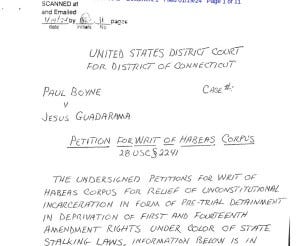 SCANNED at
and Emailed
Page 1 of 11
pages
date initials No.
UNITED STATES DISTRICT COURT
FOR DISTRICT OF CONNECTICUT
PAUL BOYNE CASE #:
V
JESUS GUADARRAMA
PETITION FOR WRIT OF HABEAS CORPUS
28 USC § 2241
THE UNDERSIGNED PETITIONS FOR WRIT OF
HABEAS CORPUS FOR RELIEF OF UNCONSTITUTIONAL
INCARCERATION IN FORM OF PRE-TRIAL DETAINMENT
IN DEPRIVATION OF FIRST AND FOURTEENTH
AMENDMENT RIGHTS UNDER COLOR OF STATE
STALKING LAWS. INFORMATION BELOW IS IN